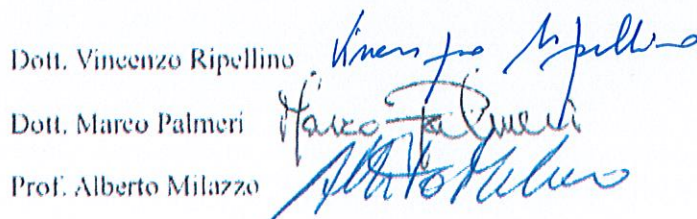 Dott. Vincenzo Ripellino Vincenzo Ripellino
Dott. Marco Palmeri Marco Palmeri
Prof. Alberto Milazzo Alberto Milazzo